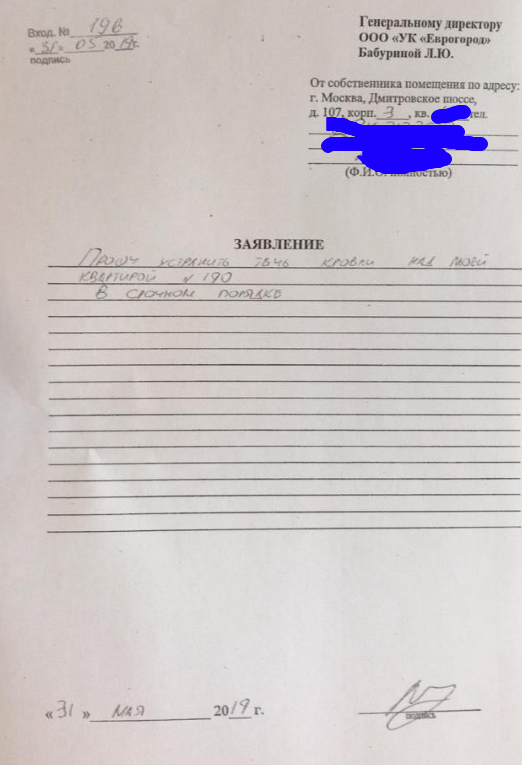 Вход. № 196
«31» 05 2019г.
подпись
Генеральному директору
ООО «УК «Еврогород»
Бабуриной Л.Ю.
От собственника помещения по адресу:
г. Москва, Дмитровское шоссе,
д. 107, корп. 3, кв. тел.
(Ф.И.О. полностью)
ЗАЯВЛЕНИЕ
Прошу устранить течь кровли над моей
квартирой № 190
в срочном порядке
«31» мая 2019 г.
подпись